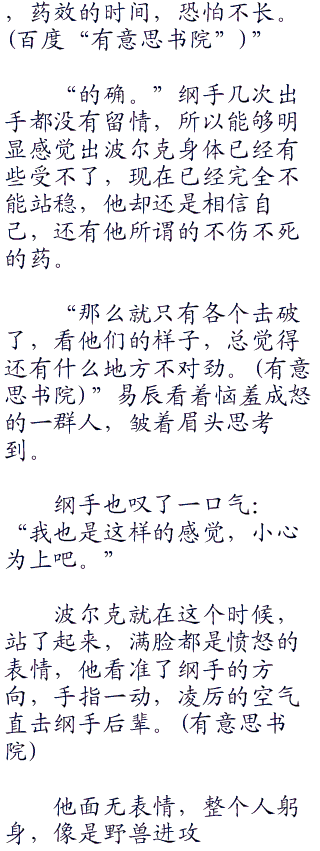 ，药效的时间，恐怕不长。
(百度“有意思书院”)”
“的确。”纲手几次出
手都没有留情，所以能够明
显感觉出波尔克身体已经有
些受不了，现在已经完全不
能站稳，他却还是相信自
己，还有他所谓的不伤不死
的药。
“那么就只有各个击破
了，看他们的样子，总觉得
还有什么地方不对劲。(有意
思书院)”易辰看着恼羞成怒
的一群人，皱着眉头思考
到。
纲手也叹了一口气：
“我也是这样的感觉，小心
为上吧。”
波尔克就在这个时候，
站了起来，满脸都是愤怒的
表情，他看准了纲手的方
向，手指一动，凌厉的空气
直击纲手后辈。(有意思书
院)
他面无表情，整个人躬
身，像是野兽进攻